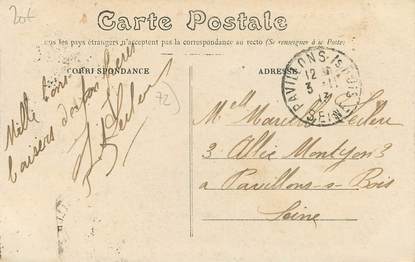 20t
Carte Postale
us les pays étrangers n'acceptent pas la correspondance au recto (Se renseigner à la Poste)
CORRESPONDANCE
ADRESSE
Mille bons
baisers de ton
72
PAVILLONS-
12
3
SEINE
Melle
3 Allée Montyon 3
a Pavillons-s-Bois
Seine